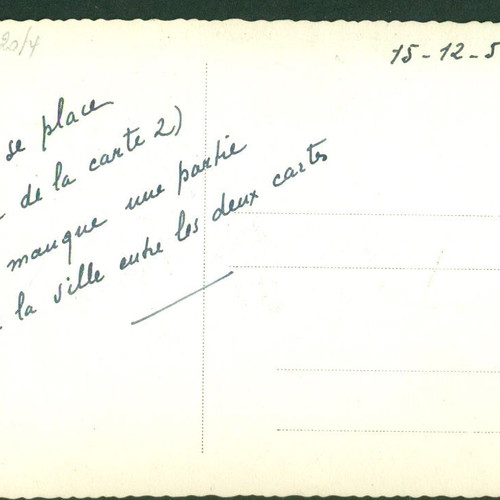 20/4
15-12-5
se place
de la carte 2)
manque une partie
la ville entre les deux cartes